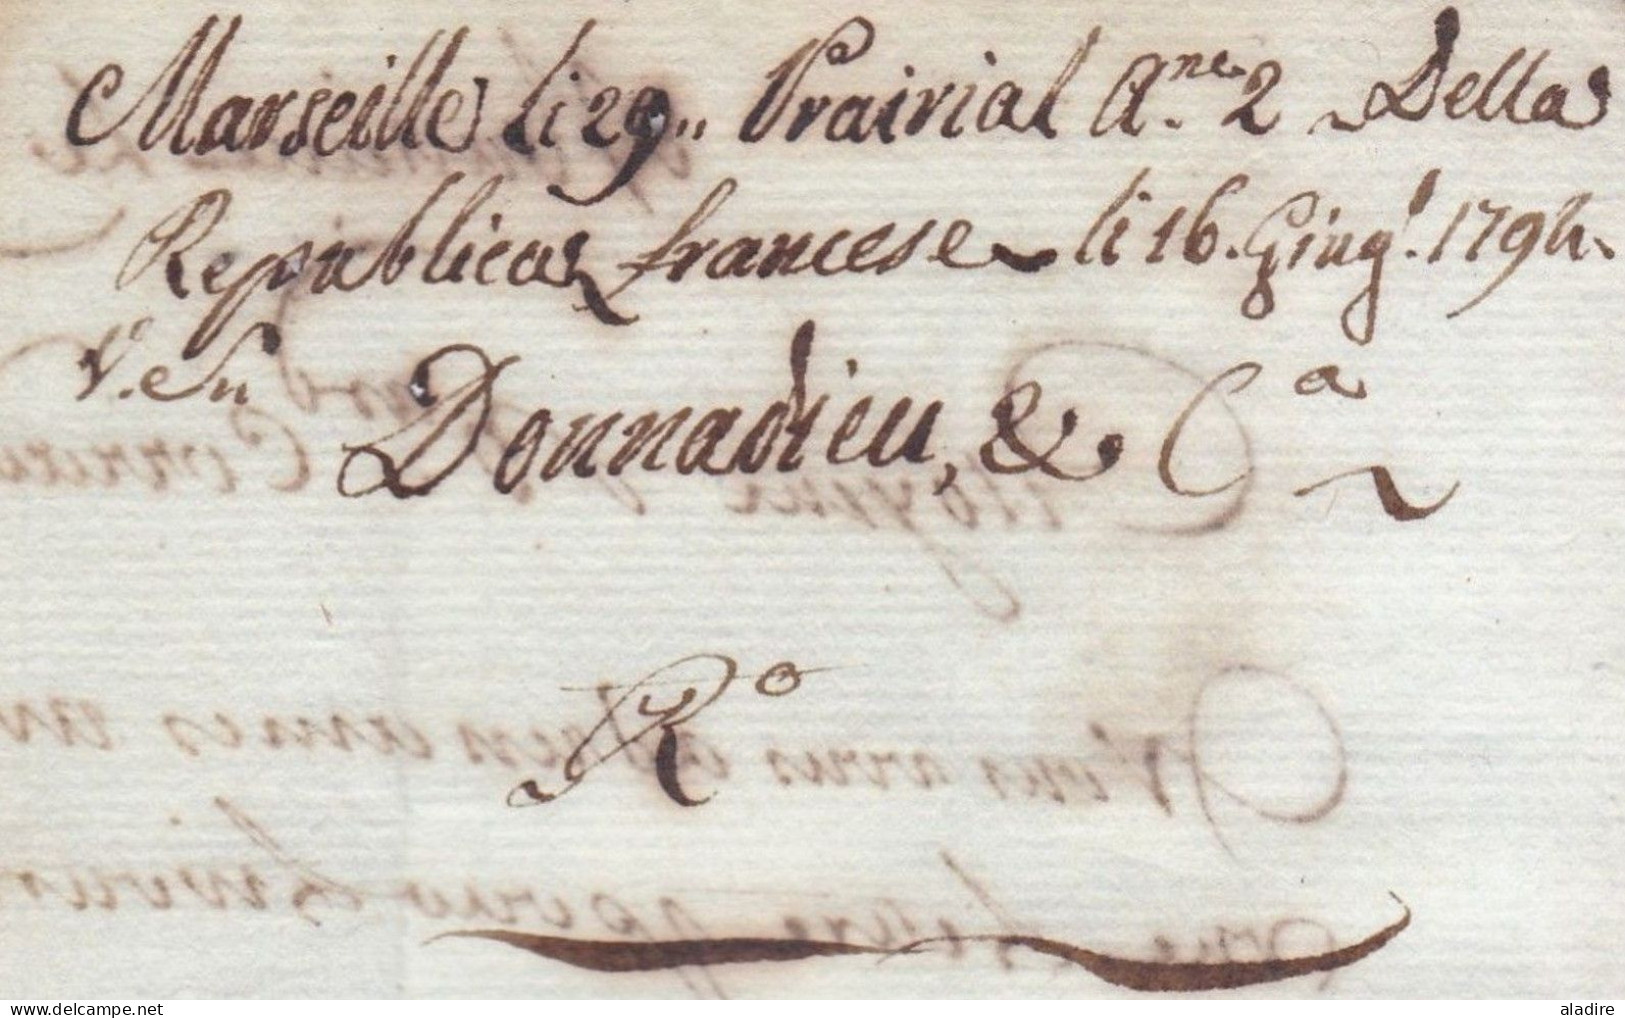 Marseille li 29,, Prairial A.ne 2 Della
Republica francese li 16. Giug.º 1794.
Donnadieu, & C.a
R.o
aladire